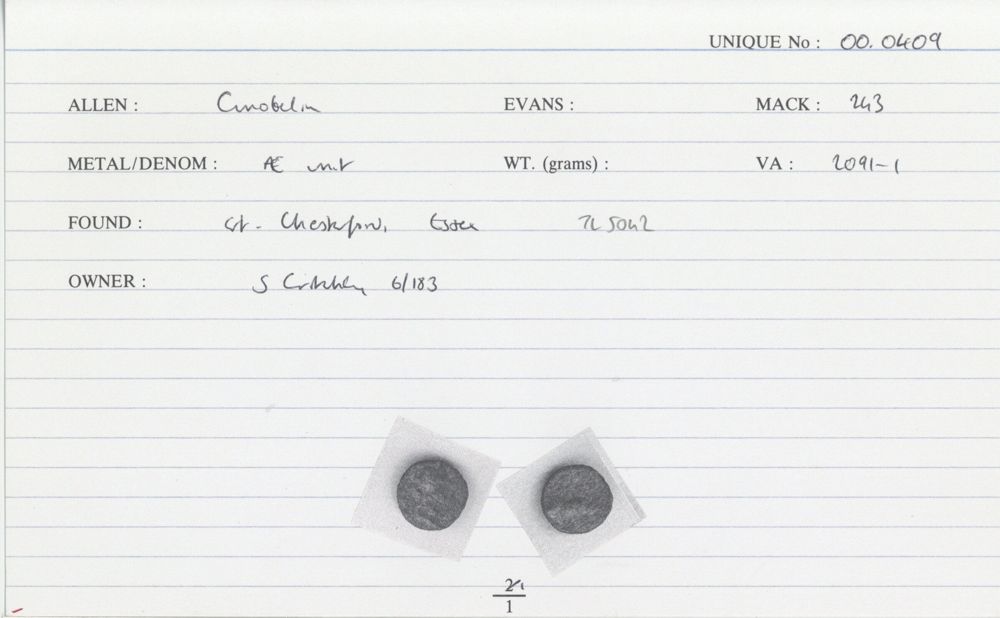 UNIQUE No : 00.0409
ALLEN : Cunobelin EVANS : MACK : 243
METAL/DENOM : Æ unit WT. (grams) : VA : 2091-1
FOUND : Gt. Chesterford, Essex TL 5042
OWNER : S Critchley 6/183
1